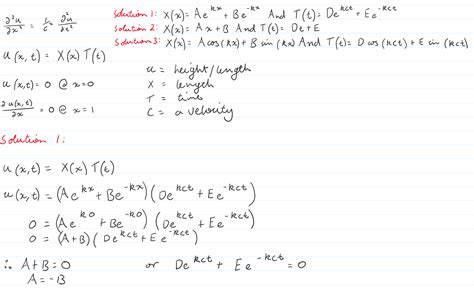 ∂²u/∂x² = 1/c² ∂²u/∂t²
Solution 1: X(x) = Ae^{kx} + Be^{-kx} And T(t) = De^{kct} + Ee^{-kct}
Solution 2: X(x) = Ax + B And T(t) = Dt + E
Solution 3: X(x) = A cos(kx) + B sin(kx) And T(t) = D cos(kct) + E sin(kct)
u(x,t) = X(x)T(t)
u(x,t) = 0 @ x=0
∂u(x,t)/∂x = 0 @ x=1
u = height/length
X = length
T = time
C = a velocity
Solution 1:
u(x,t) = X(x)T(t)
u(x,t) = (Ae^{kx} + Be^{-kx})(De^{kct} + Ee^{-kct})
0 = (Ae^{k0} + Be^{-k0})(De^{kct} + Ee^{-kct})
0 = (A+B)(De^{kct} + Ee^{-kct})
∴ A+B=0 or De^{kct} + Ee^{-kct} = 0
A=-B